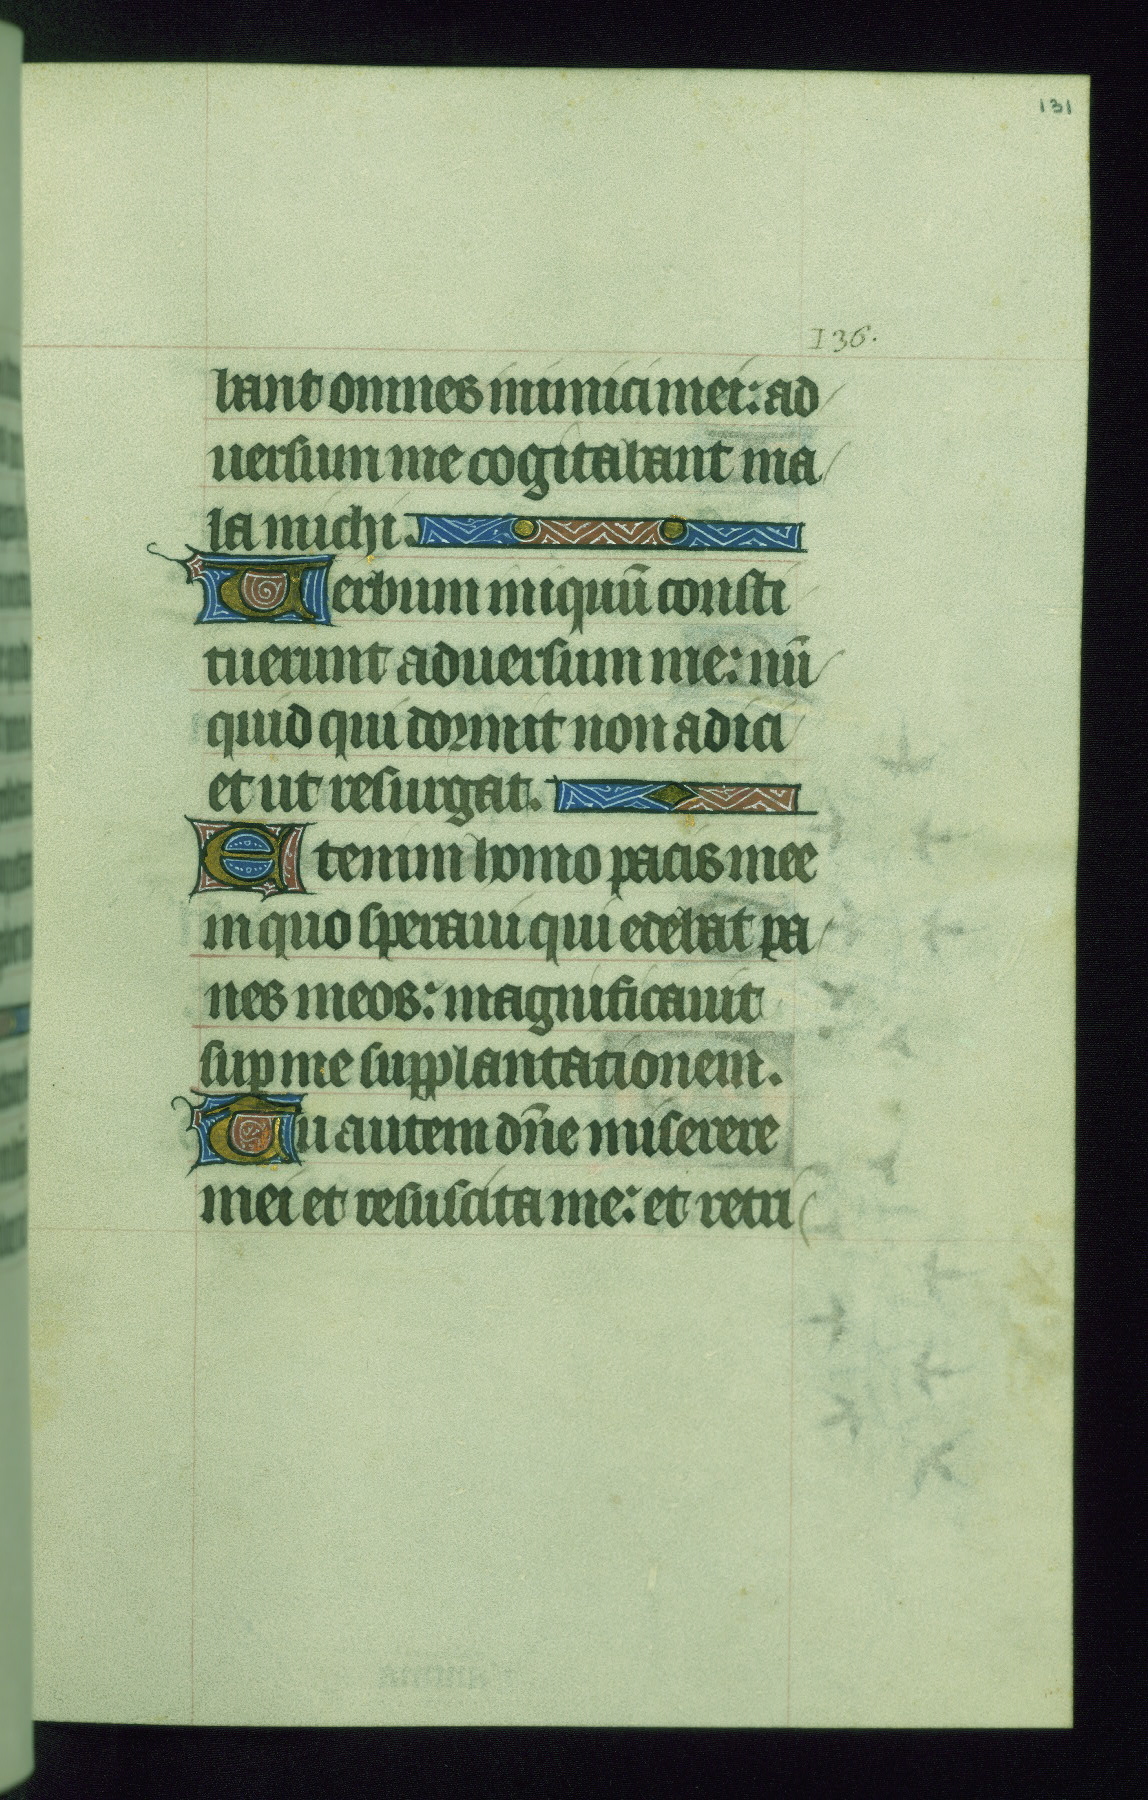 131
136.
bant omnes inimici mei: ad
uersum me cogitabant ma
la michi.
Uerbum iniquū consti
tuerunt aduersum me: nū
quid qui dormit non adici
et ut resurgat.
Etenim homo pacis mee
in quo speraui qui edebat pa
nes meos: magnificauit
suꝑ me supplantationem.
Tu autem dn̄e miserere
mei et resuscita me: et retri